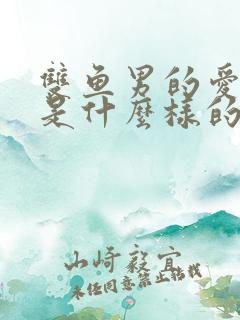 雙鱼男的愛
是什麼樣的
山崎毅宜
未經同意禁止轉載